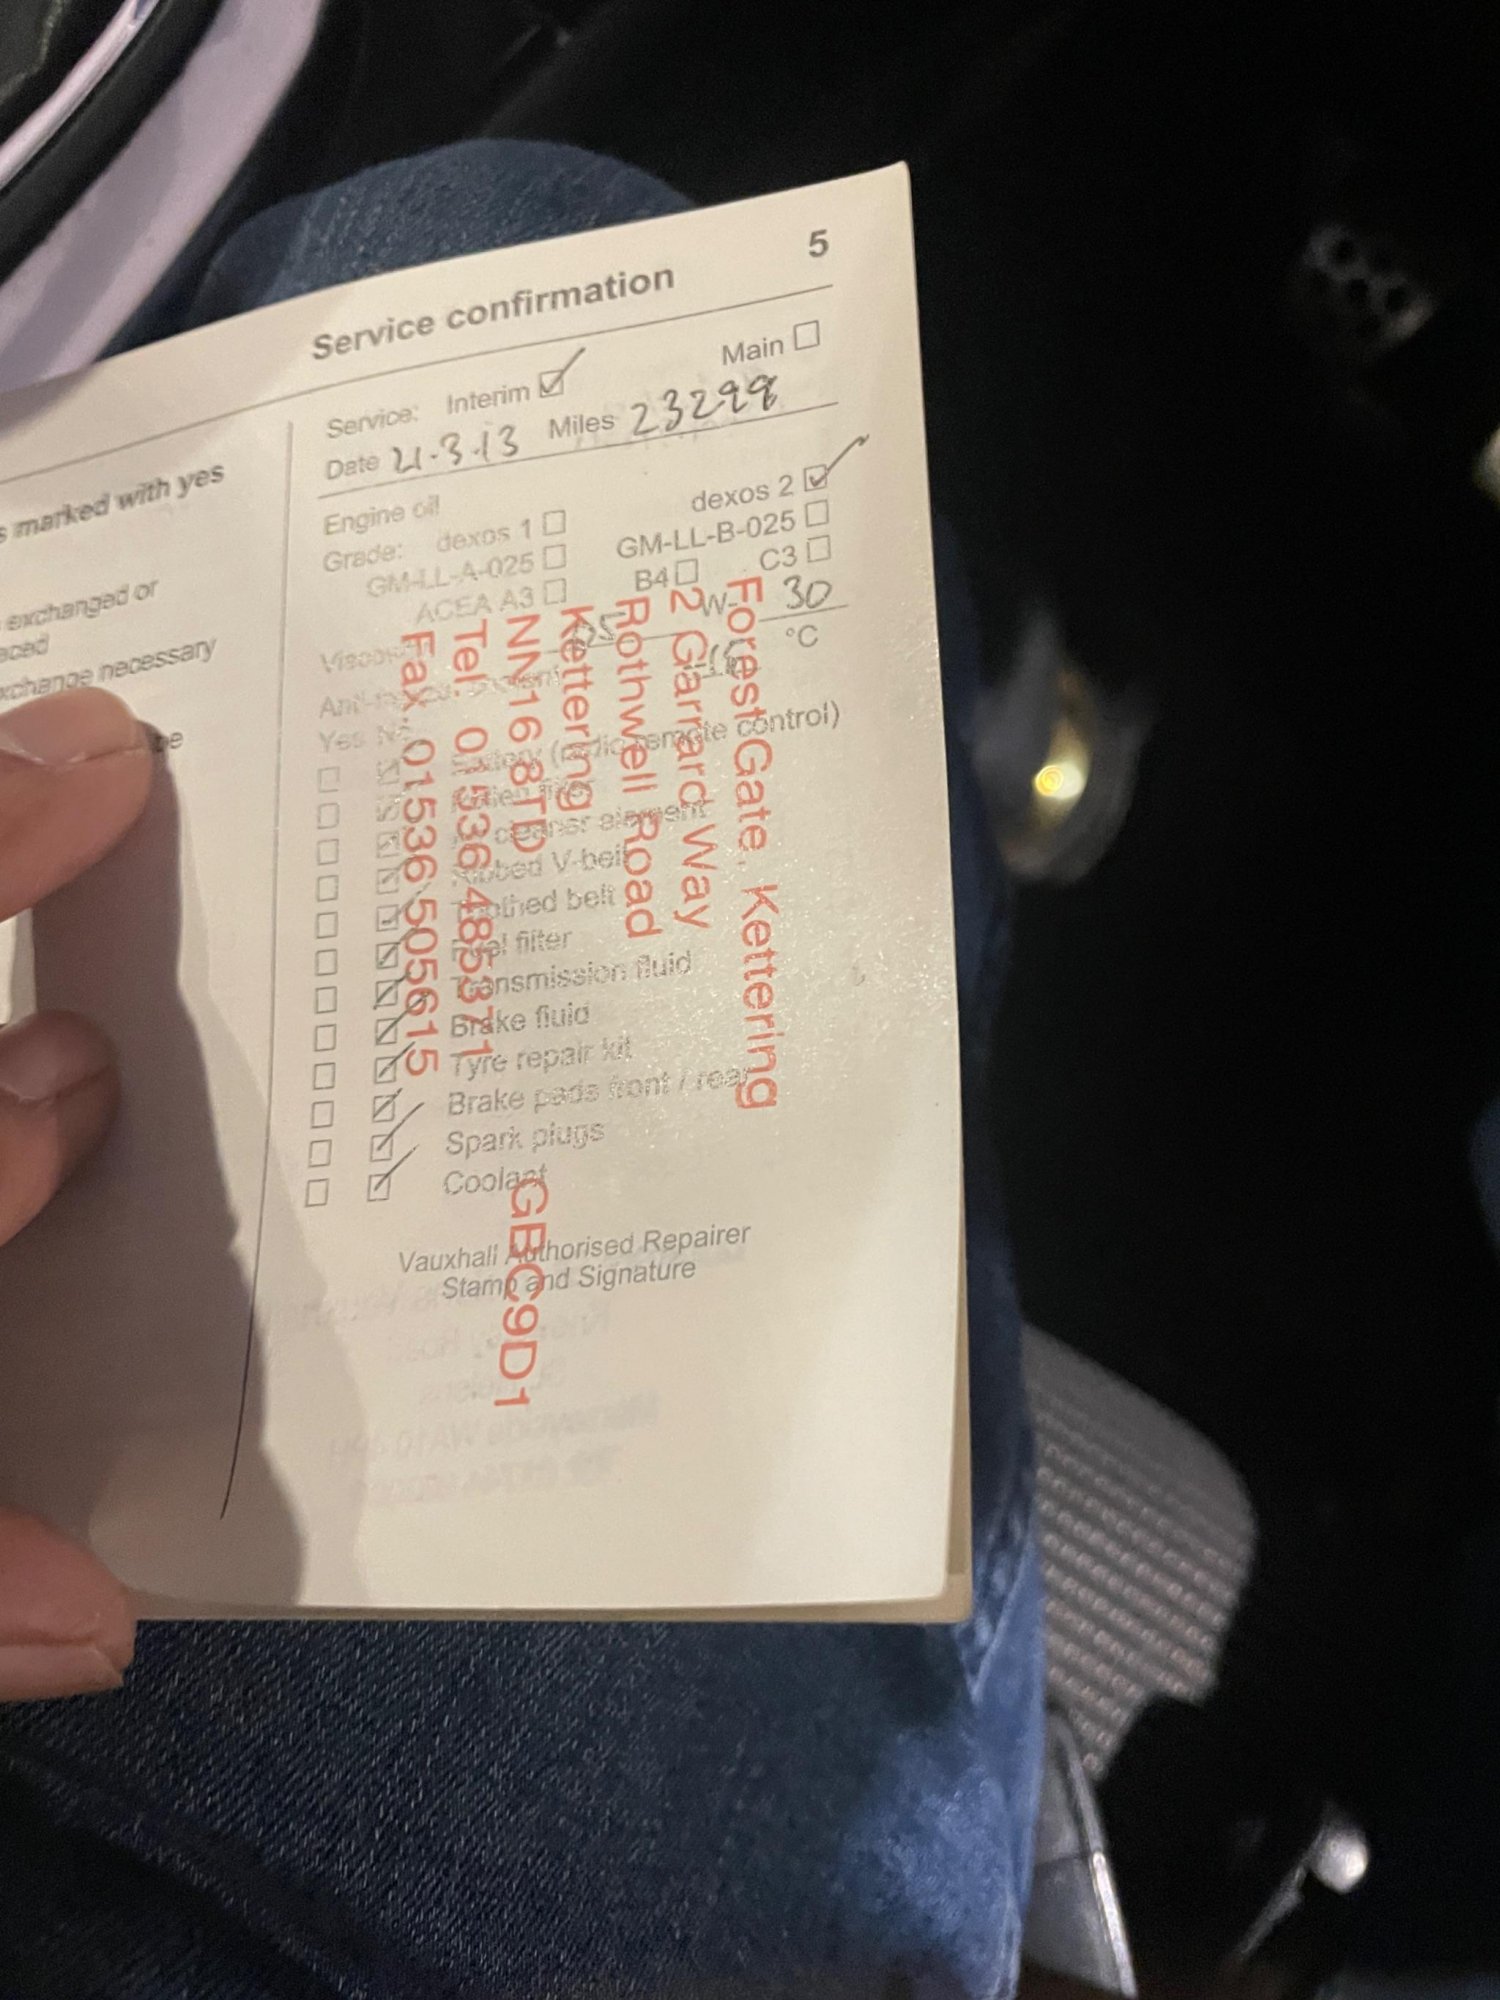 5
Service confirmation
Service: Interim Main
Date 21.3.13 Miles 23299
Engine oil dexos 2
Grade: dexos 1 GM-LL-B-025
GM-LL-A-025 C3
ACEA A3 B4
W- 30
°C
Yes
(radio remote control)
cleaner element
Ribbed V-belt
Toothed belt
Fuel filter
Transmission fluid
Brake fluid
Tyre repair kit
Brake pads front / rear
Spark plugs
Coolant
Vauxhall Authorised Repairer
Stamp and Signature
Forest Gate, Kettering
2 Garrard Way
Rothwell Road
Kettering
NN16 8TD GBC9D1
Tel 01536 485371
Fax 01536 505615
marked with yes
exchanged or
necessary